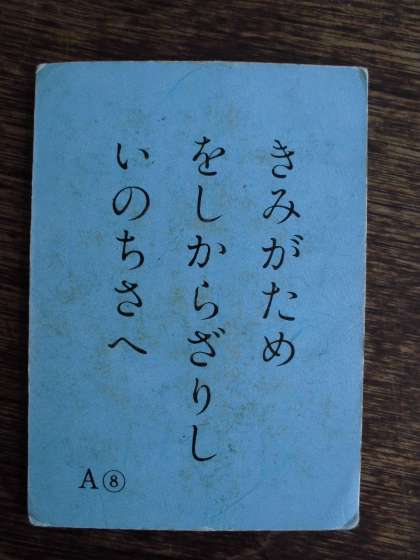 きみがため
をしからざりし
いのちさへ
A⑧